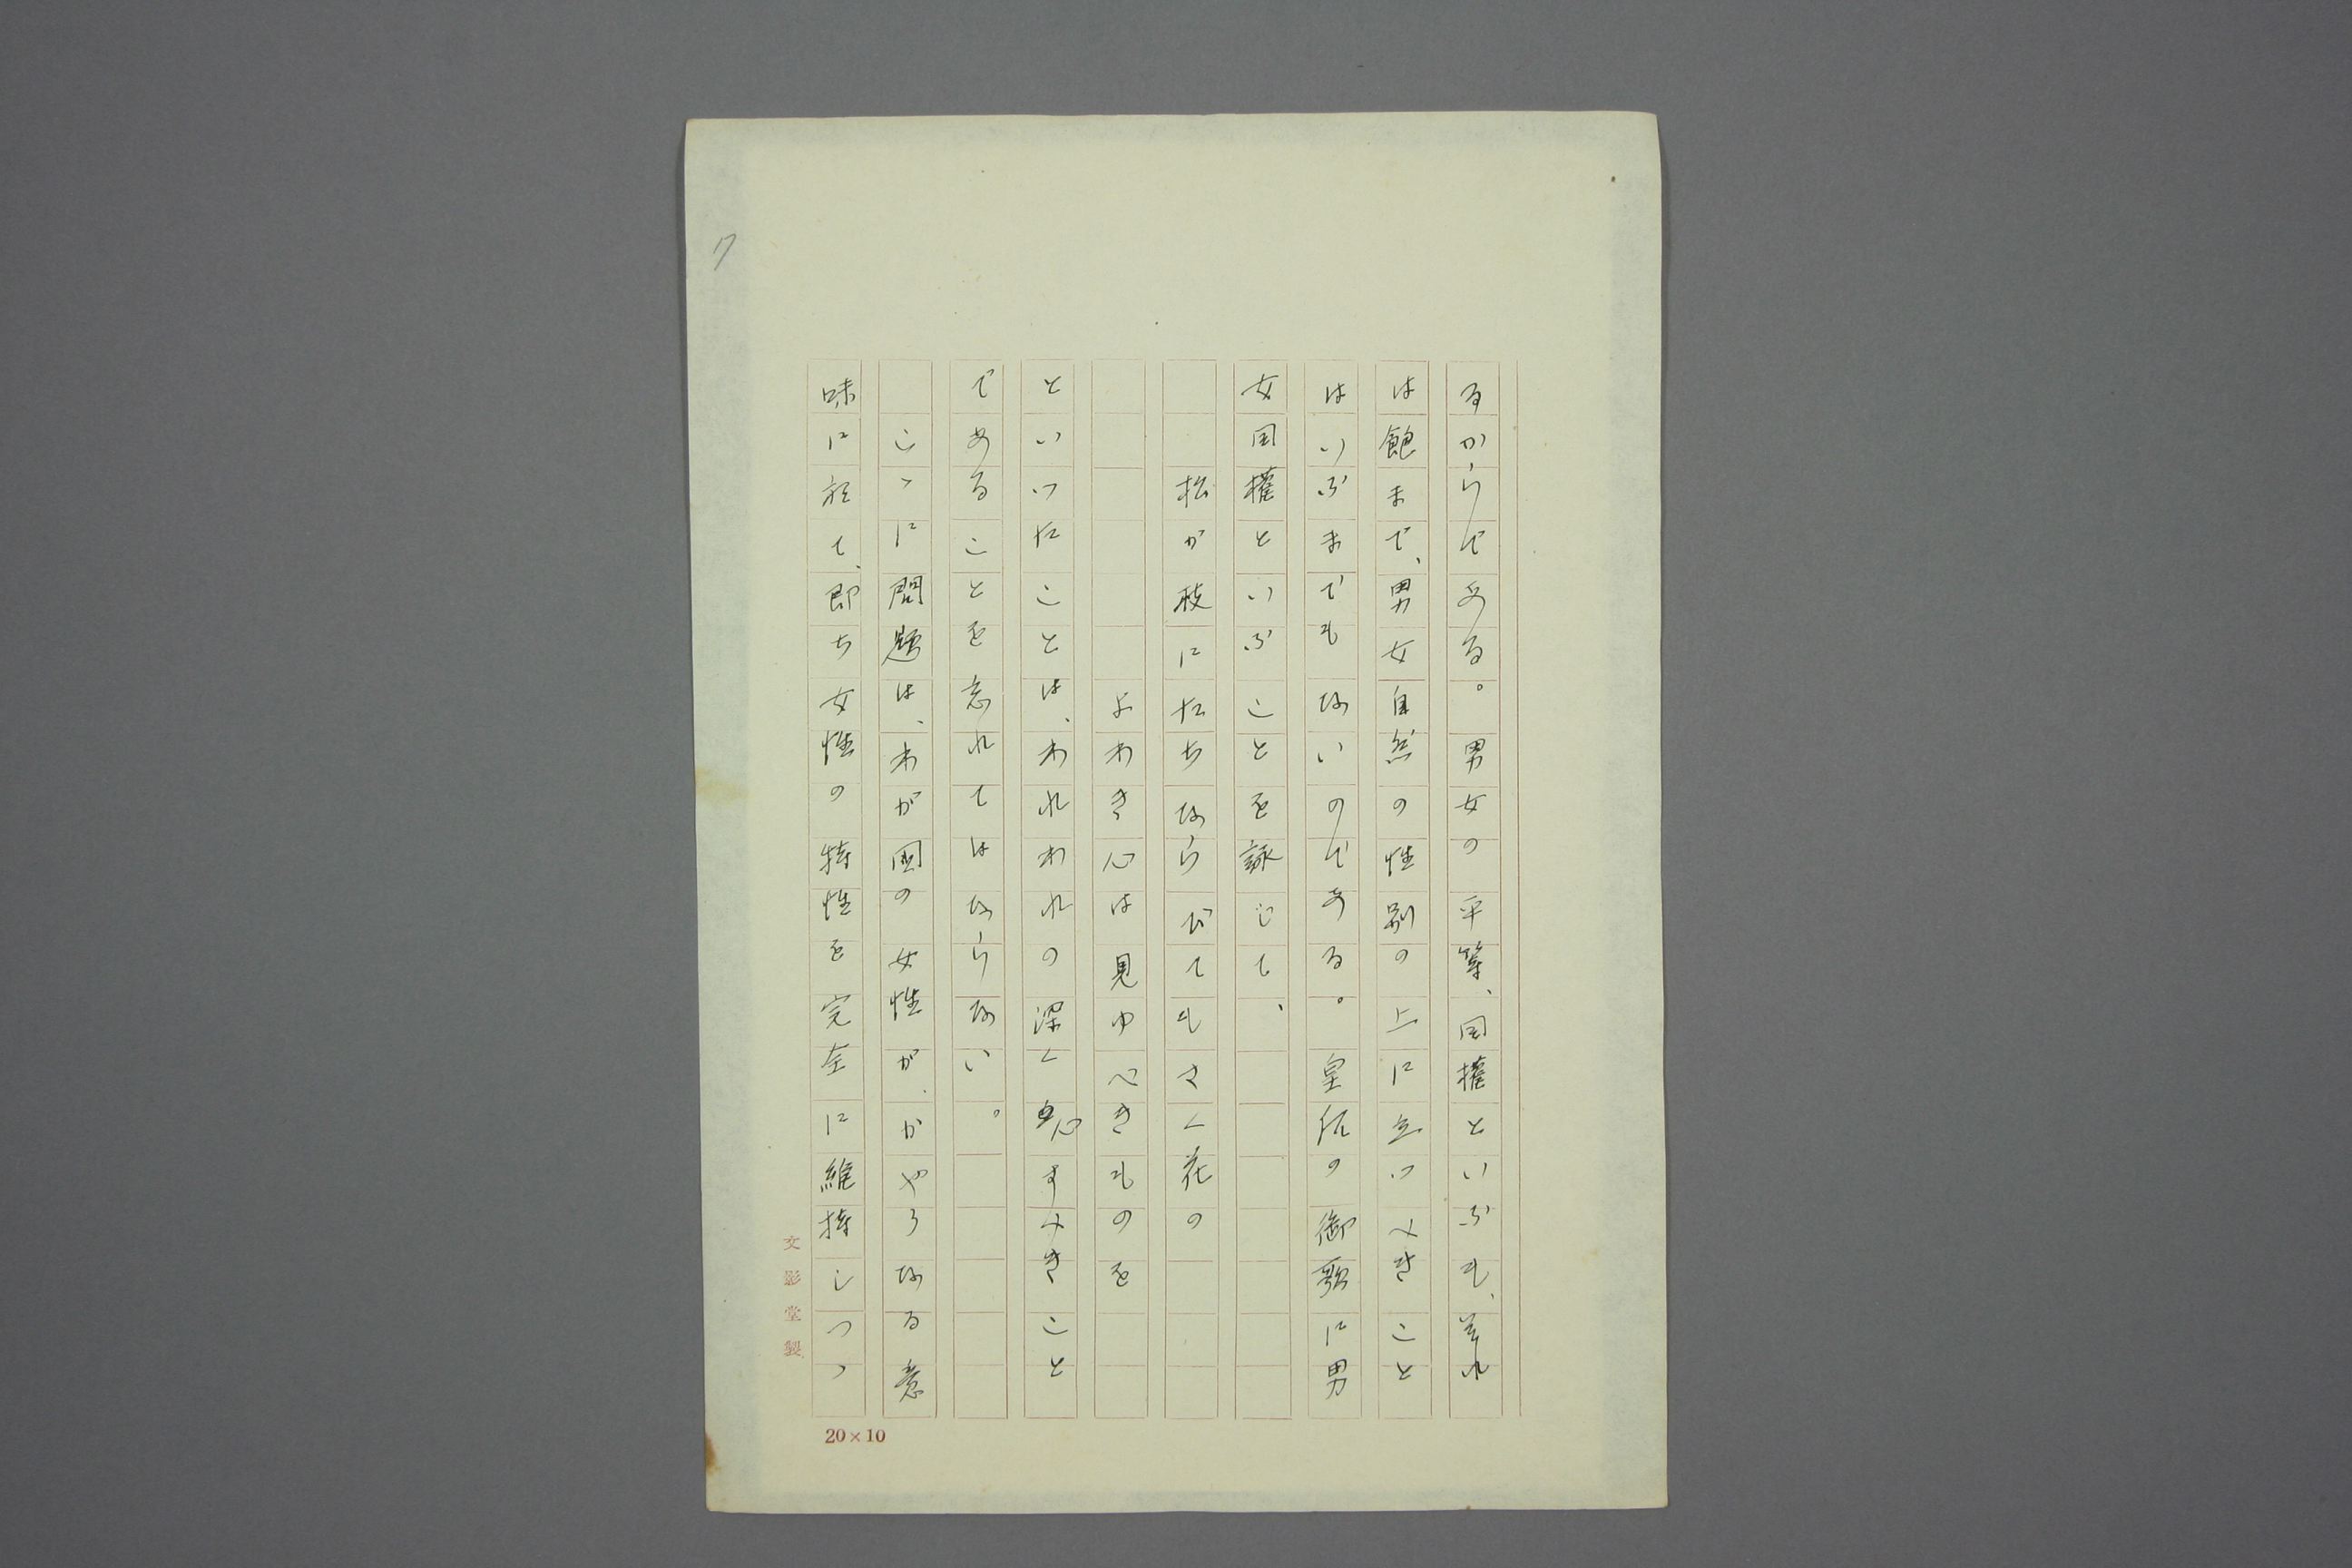 るからである。男女の平等、同権といふも、それ
は飽まで、男女自然の性別の上に立つべきこと
はいふまでもないのである。皇后の御歌に男
女同権といふことを詠じて、
松が枝にたちならびてもさく花の
よわき心は見ゆべきものを
といつたことは、われわれの深く思すべきこと
であることを忘れてはならない。
こゝに問題は、わが国の女性が、かやうなる意
味に於て、即ち女性の特性を完全に維持しつゝ
7
文影堂製
20×10